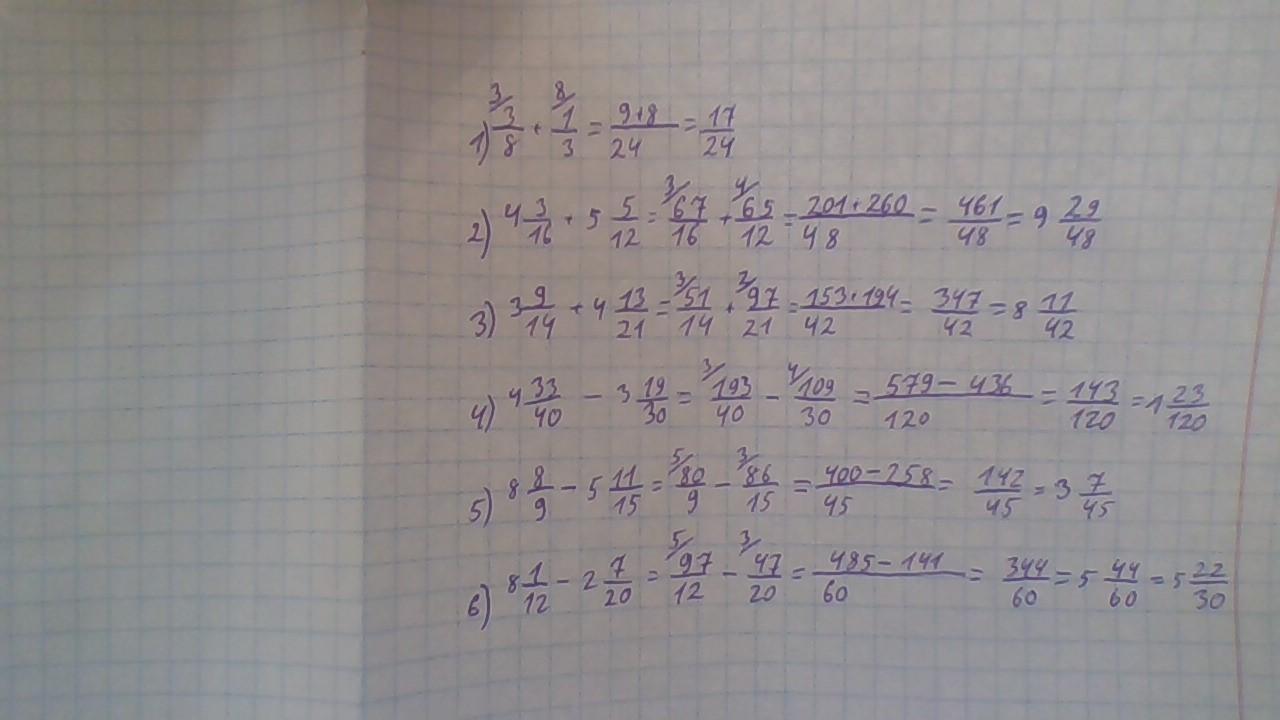 1) 3/ 3/8 + 8/ 1/3 = (9+8)/24 = 17/24
2) 4 3/16 + 5 5/12 = 3/ 67/16 + 4/ 65/12 = (201+260)/48 = 461/48 = 9 29/48
3) 3 9/14 + 4 13/21 = 3/ 51/14 + 2/ 97/21 = (153+194)/42 = 347/42 = 8 11/42
4) 4 33/40 - 3 19/30 = 3/ 193/40 - 4/ 109/30 = (579-436)/120 = 143/120 = 1 23/120
5) 8 8/9 - 5 11/15 = 5/ 80/9 - 3/ 86/15 = (400-258)/45 = 142/45 = 3 7/45
6) 8 1/12 - 2 7/20 = 5/ 97/12 - 3/ 47/20 = (485-141)/60 = 344/60 = 5 44/60 = 5 22/30